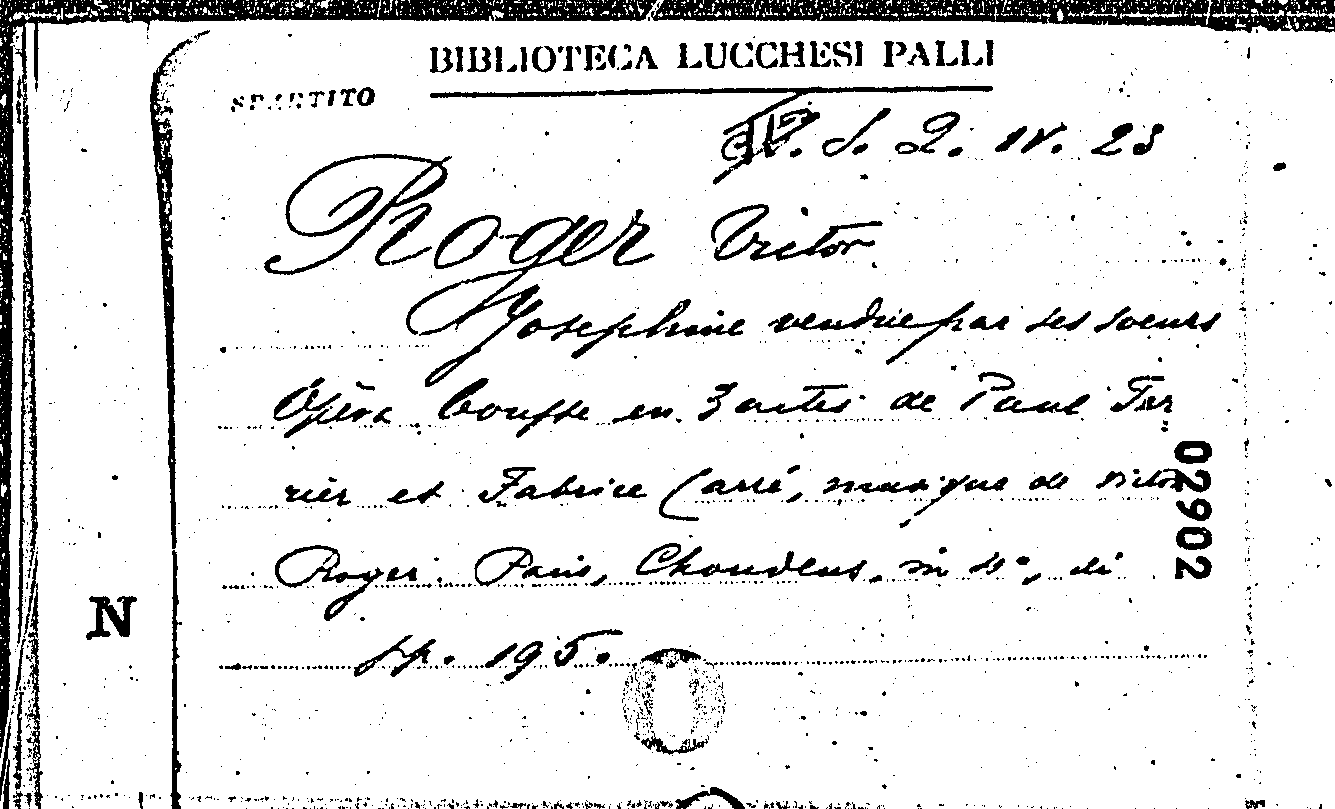 BIBLIOTECA LUCCHESI PALLI
SPARTITO
S. 2. IV. 23
Roger Victor
Josephine vendue par ses soeurs
Opèra bouffe en 3 actes de Paul Fer
rier et Fabrice Carré, musique de Victor
Roger. Paris, Choudens, in 4°, di
pp. 195.
02902
N